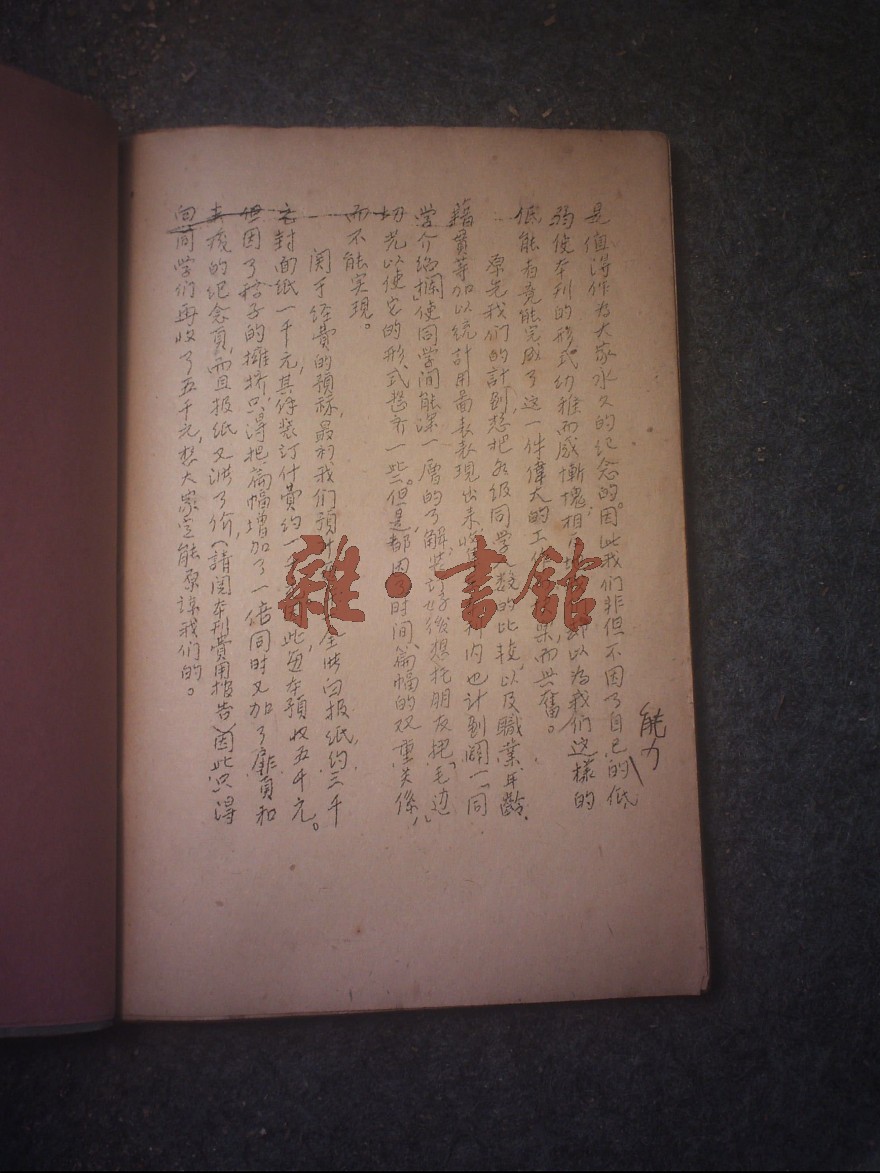 是值得作为大家永久的纪念的。因此我们非但不因了自己的能力低
弱使本刊的形式幼稚而感慚愧相反地却以为我们这樣的
低能者竟能完成了这一件偉大的工而兴奮。
原先我们的計劃想把各级同学人数的比較,以及職業年齡.
籍貫等加以統計用圖表表現出来内也計劃闢一「同
学介绍欄」使同学间能深一層的了解装訂好後想托朋友把「毛边」
切光以使它的形式整齐一些。但是都因了时间、篇幅的双重关係,
而不能实现。
関于经費的預祘,最初我们預计全冊白报纸约三千
元封面纸一千元,其馀装订什費约一千此每本預收五千元。
但因了稿子的擁挤,只得把篇幅增加了一倍同时又加了扉頁和
真痕的纪念頁,而且报纸又涨了价,(請閲本刊費用报告)因此只得
向同学们再收了五千元,想大家定能原諒我们的。
雜·書館